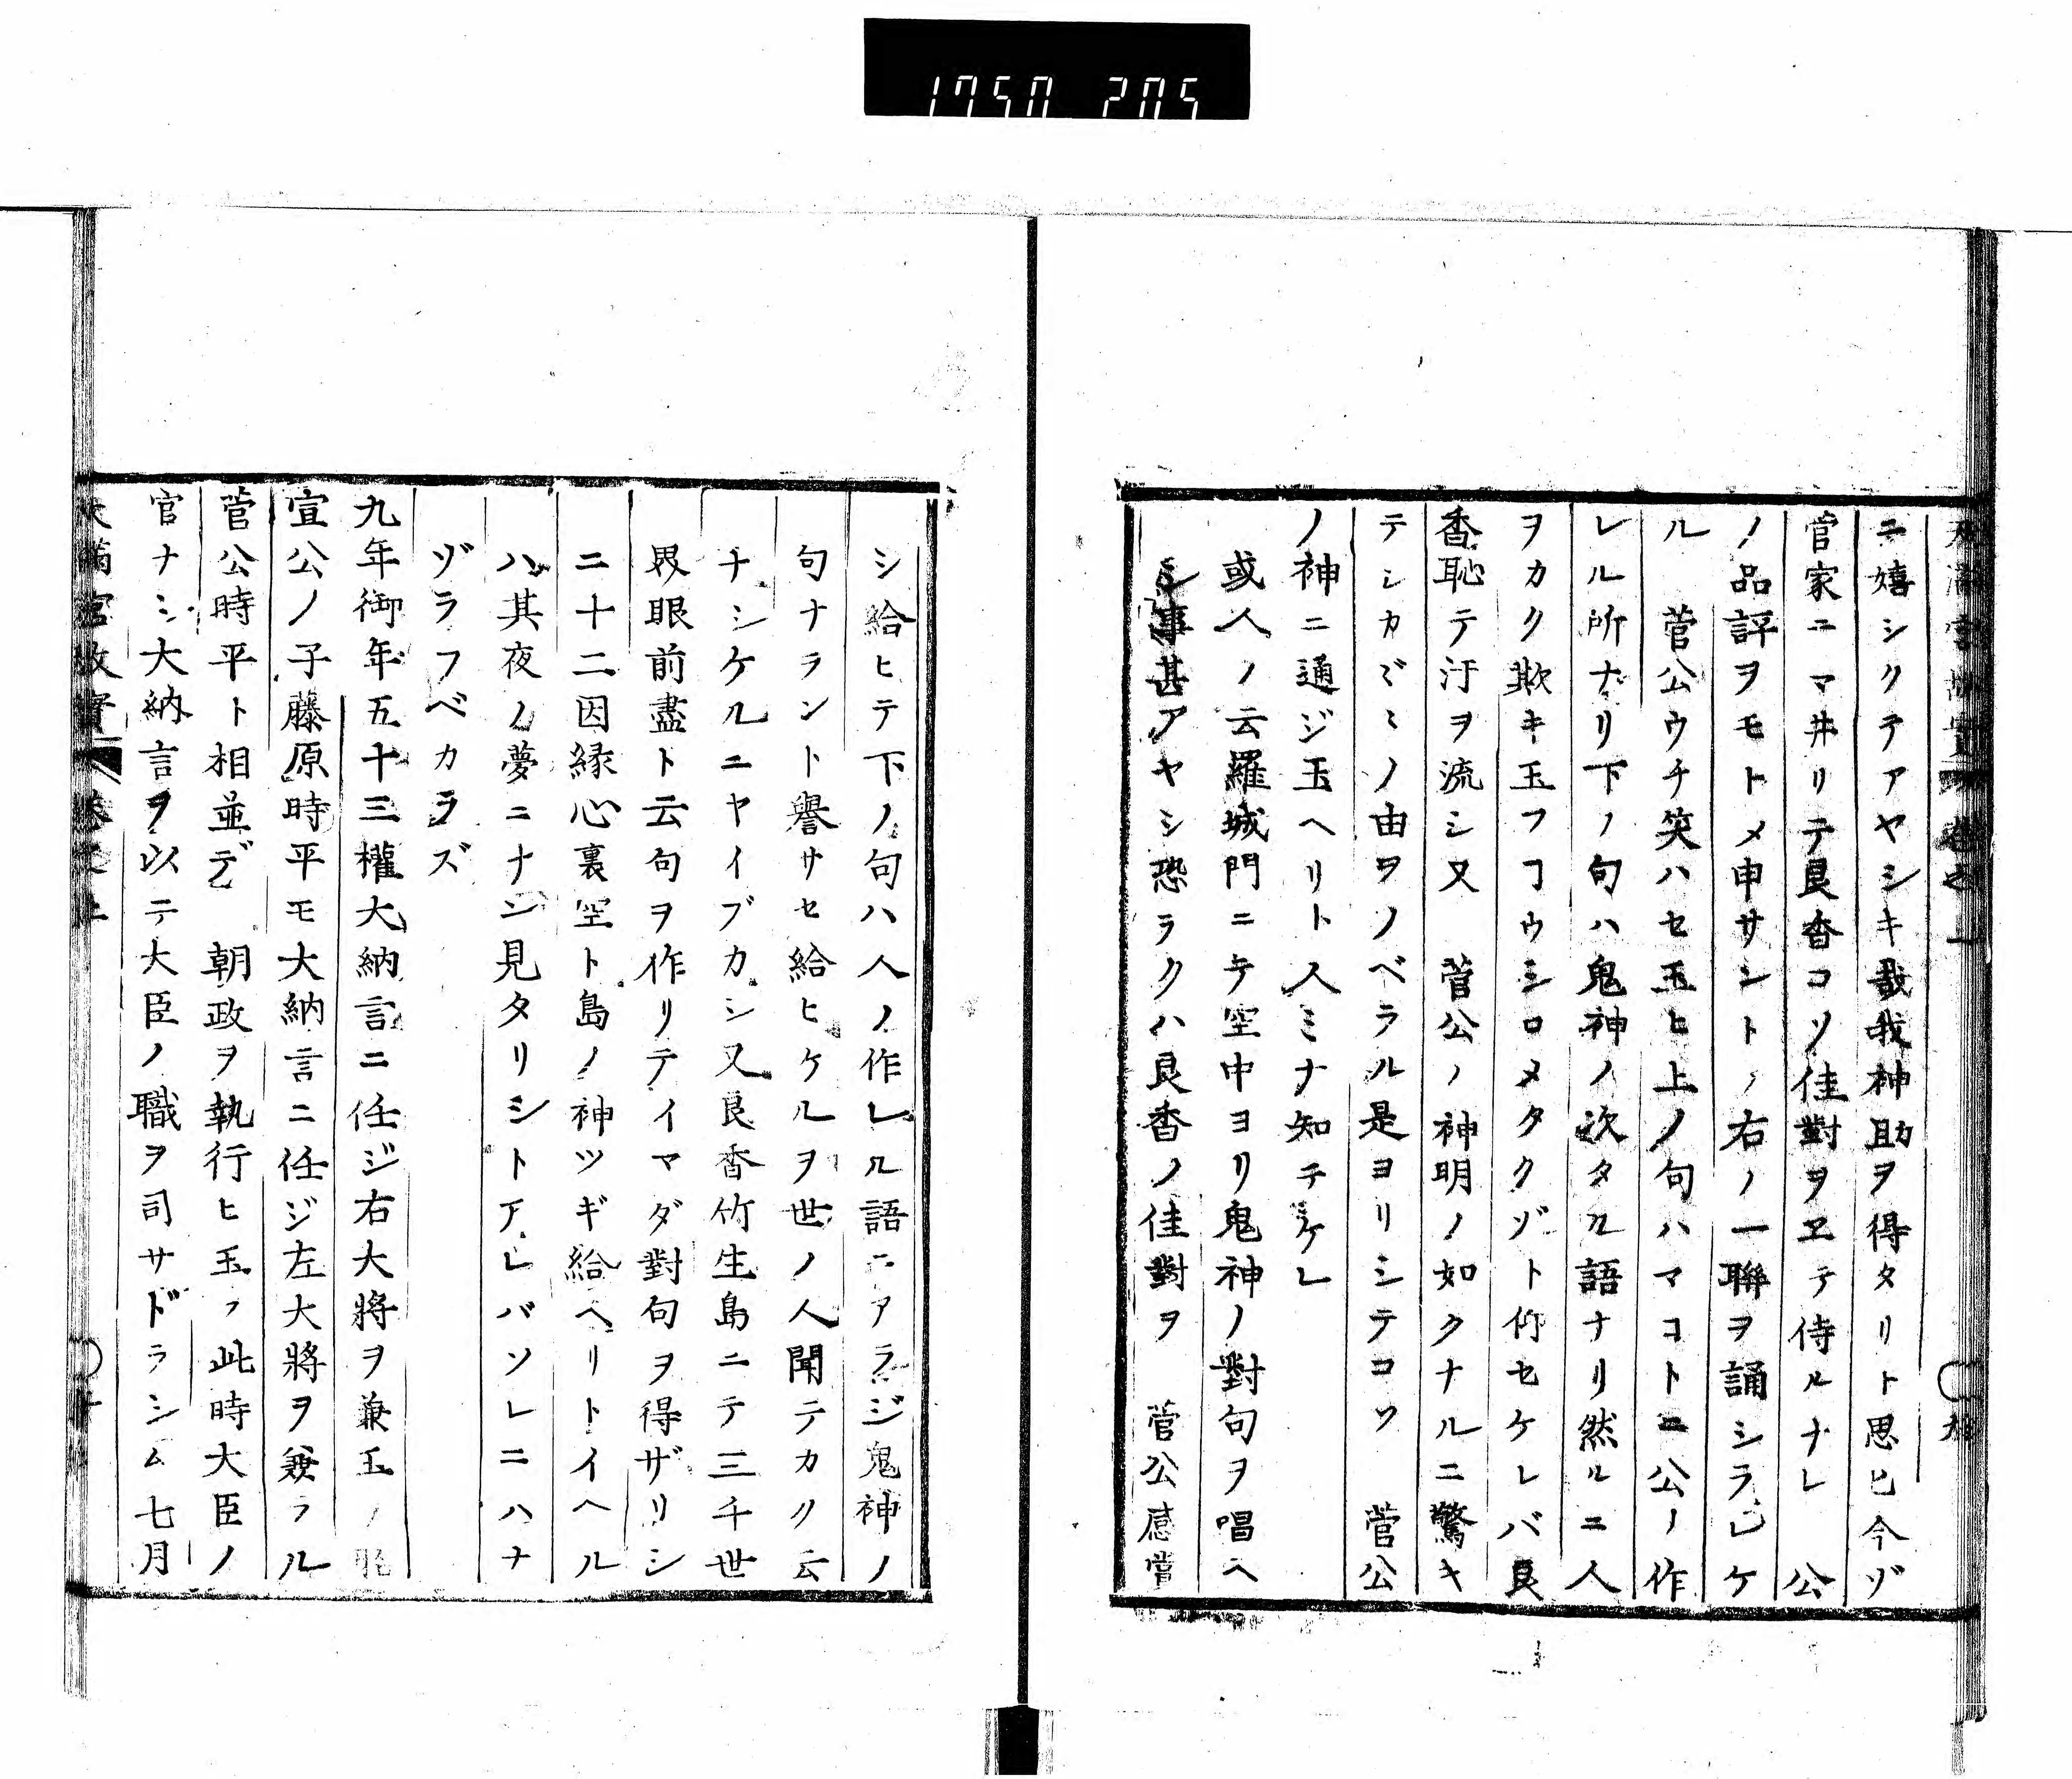 1750 205
ニ嬉シクテアヤシキ哉我神助ヲ得タリト思ヒ今ゾ
官家ニマ井リテ良香コソ佳對ヲヱテ侍ルナレ 公
ノ品評ヲモトメ申サシトノ右ノ一聯ヲ誦シラレケ
ル 菅公ウチ笑ハセ玉ヒ上ノ句ハマコトニ公ノ作
レル所ナリ下ノ句ハ鬼神ノ次タル語ナリ然ルニ人
ヲカク欺キ玉フコウシロメタクゾト仰セケレバ良
香恥テ汗ヲ流シ又 菅公ノ神明ノ如クナルニ驚キ
テシカ〴〵ノ由ヲノベラル是ヨリシテコソ 菅公
ノ神ニ通ジ玉ヘリト人ミナ知テケレ
或人ノ云羅城門ニテ空中ヨリ鬼神ノ對句ヲ唱ヘ
シ事甚アヤシ恐ラクハ良香ノ佳對ヲ 菅公感嘗
シ給ヒテ下ノ句ハ人ノ作レル語ニアラジ鬼神ノ
句ナラント譽サセ給ヒケルヲ世ノ人聞テカク云
ナシケルニヤイブカシ又良香竹生島ニテ三千世
界眼前盡ト云句ヲ作リテイマダ對句ヲ得ザリシ
ニ十二因縁心裏空ト島ノ神ツギ給ヘリトイヘル
ハ其夜ノ夢ニナン見タリシトアレバソレニハナ
ゾラフベカラズ
九年御年五十三權大納言ニ任ジ右大將ヲ兼玉ノ
宣公ノ子藤原時平モ大納言ニ任ジ左大將ヲ兼ラル
菅公時平ト相並デ 朝政ヲ執行ヒ玉フ此時大臣ノ
官ナシ大納言ヲ以テ大臣ノ職ヲ司サドラシム七月